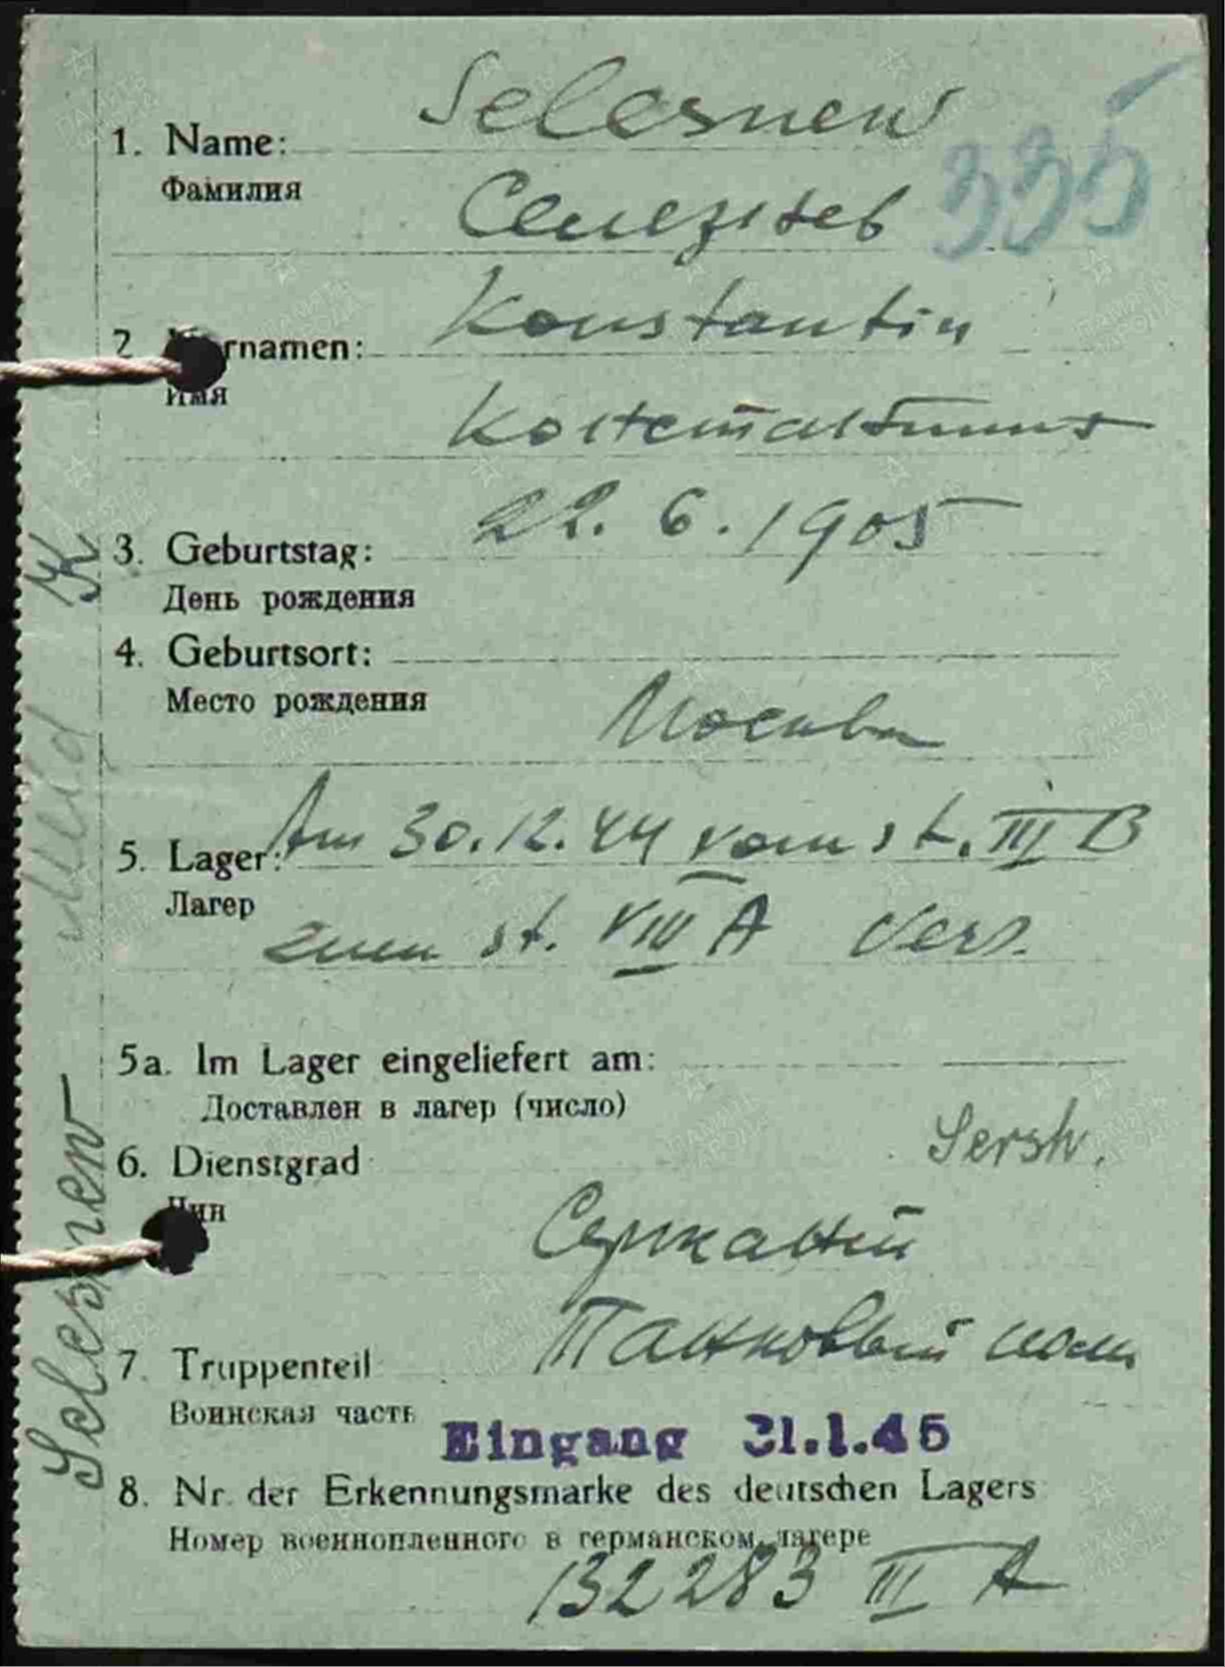 Selesnew
1. Name:
Фамилия
Селезнев
335
Konstantin
2. Vornamen:
Имя
Константин
22. 6. 1905
3. Geburtstag:
День рождения
4. Geburtsort:
Место рождения
Москва
Am 30.12.44 vom st. III B
5. Lager:
Лагер
zum st. VIII A Vers.
5a. Im Lager eingeliefert am:
Доставлен в лагер (число)
Sersh.
6. Dienstgrad
Чин
Сержант
Танковый полк
7. Truppenteil
Воинская часть
Eingang 31.1.45
8. Nr. der Erkennungsmarke des deutschen Lagers
Номер военнопленного в германском лагере
132283 III A
Selesnew
K